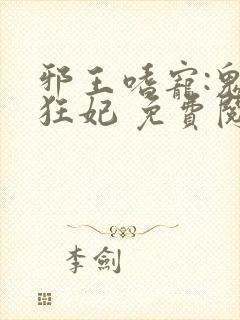 邪王嗜寵:鬼
狂妃 免費閱
李劍